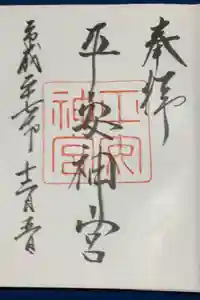 奉拝
平安神宮
平安神宮
平成二十六年十二月五日